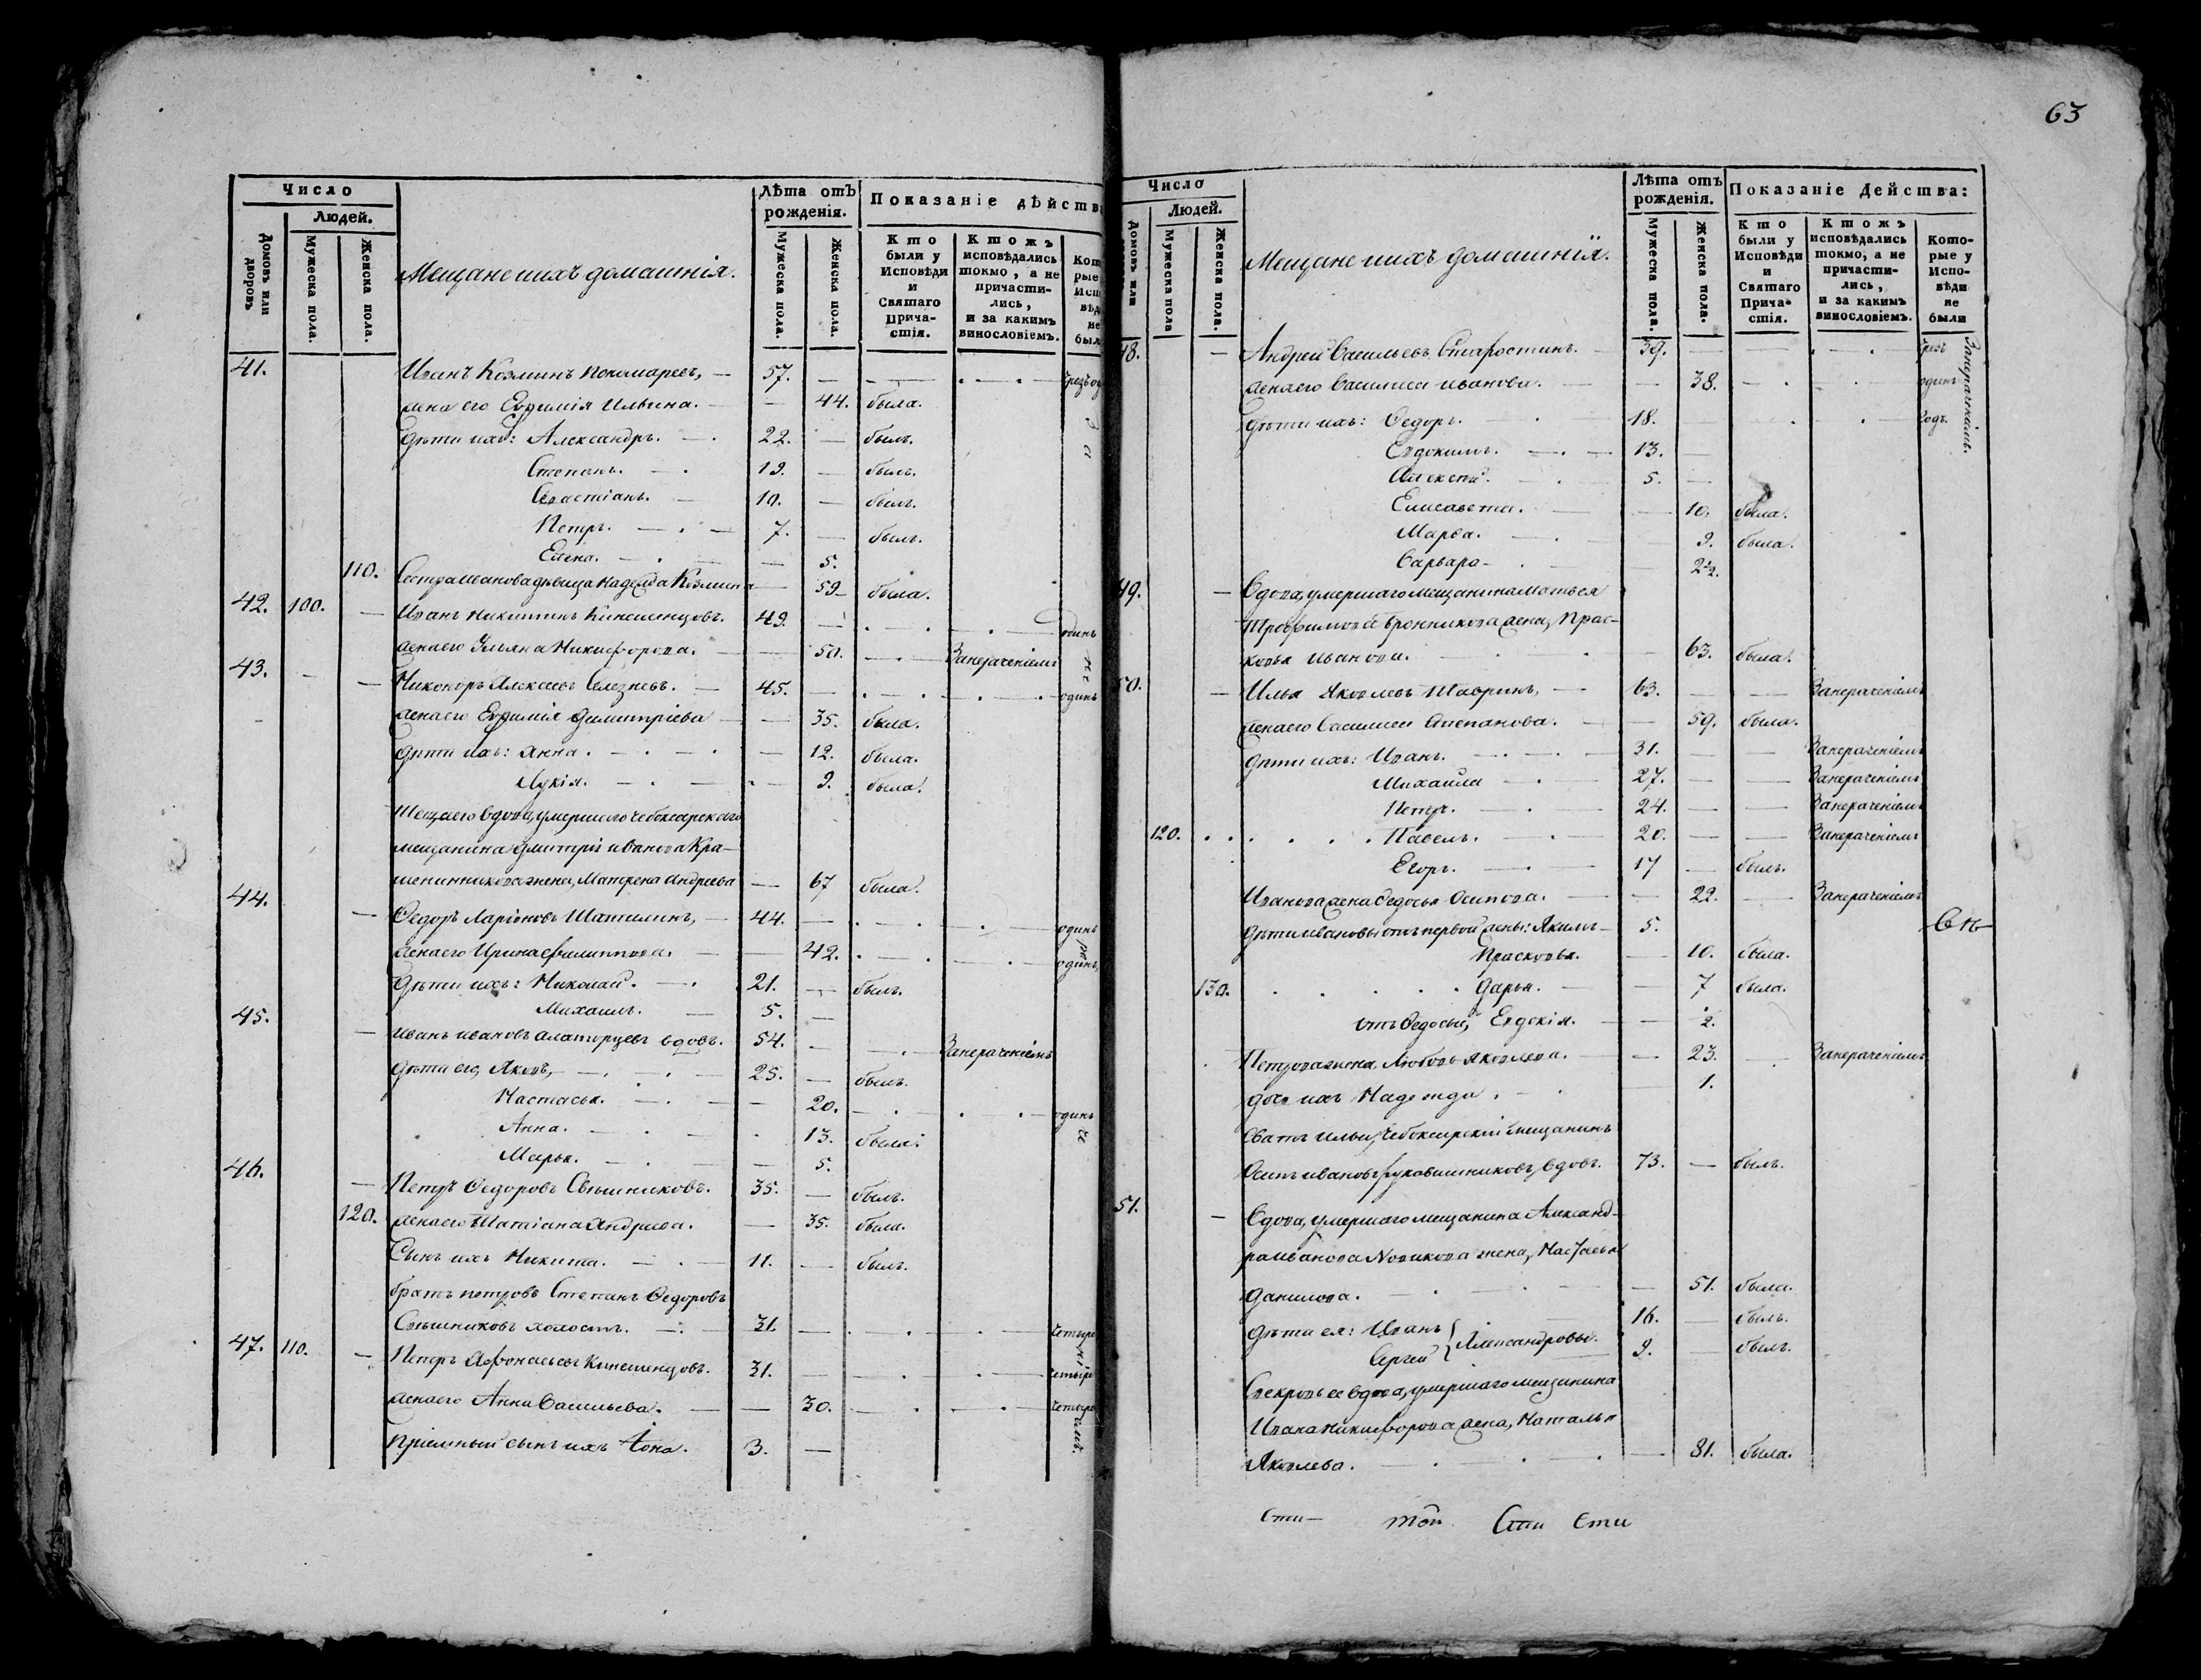 Число
Людей.
Домовъ или дворовъ
Мужеска пола.
Женска пола.
Мещане ихъ домашнія.
Лѣта отъ рожденія.
Мужеска пола.
Женска пола.
Показаніе дѣйств
Кто были у Исповѣди и Святаго Прича-стія.
Ктожъ исповѣдались токмо, а не причасти-лись, и за какимъ винословіемъ.
41. Иванъ Козминъ Пономаревъ, — 57. —
жена его Евфимія Ильина. — 44. была.
Дѣти ихъ: Александръ. — 22. — былъ.
Степанъ. — 19. — былъ.
Севастіанъ. — 10. — былъ.
Петръ. — 7. — былъ.
Елена. — 5.
110. Сестра Иванова дѣвица Надежда Козмина — 59 — была.
42. 100. — Иванъ Никитинъ Кинешемцовъ. 49. — одинъ
жена его Ульяна Никифорова. — 50. — Занераченіемъ
43. — Никоноръ Алексеевъ Селезневъ. — 45. — одинъ
жена его Евфимія Димитріева — 35. была.
Дѣти ихъ: Анна. — 12. была.
Лукія. — 9. была.
Теща его вдова, умершаго чебоксарскаго
мещанина Дмитрія Иванова Кра-
шенинникова жена, Матрена Андреева — 67 была.
44. — Федоръ Ларіоновъ Шатилинъ, — 44. — одинъ
жена его Ирина Филиппова. — 42. — одинъ,
Дѣти ихъ: Николай. — 21. — былъ.
Михаилъ. — 5. —
45. — Иванъ Ивановъ Алаторцевъ вдовъ. 54. — Занераченіемъ
Дѣти его, Яковъ, — 25. — былъ.
Настасья. — 20. — одинъ
Анна. — 13. была.
Марья. — 5.
46. — Петръ Федоровъ Свешниковъ. 35. — былъ.
120. жена его Татіана Андреева. — 35. была.
Сынъ ихъ Никита. — 11. — былъ.
братъ петровъ Степанъ Федоровъ
Свешниковъ холостъ. — 31. — четыре
47. 110. — Петръ Афонасьевъ Кинешемцовъ. 31. — четыре
жена его Анна Васильева. — 30. — четыре
пріемный сынъ ихъ Іона. 3. —
63
Число
Людей.
Домовъ или
Мужеска пола
Женска пола.
Мещане ихъ домашнія.
Лѣта отъ рожденія.
Мужеска пола.
Женска пола.
Показаніе Действа:
Кто были у Исповѣди и Святаго Прича-стія.
Ктожъ исповѣдались токмо, а не причасти-лись, и за какимъ винословіемъ.
Кото-рые у Испо-вѣди не были
48. — Андрей Васильевъ Старостинъ. — 39. — Чрезъ Занераченіемъ.
жена его Василиса Иванова. — 38. — одинъ
Дѣти ихъ: Федоръ. — 18. — Годъ.
Евдокимъ. — 13. —
Алексей. — 5. —
Елисавета. — 10. была.
Марѳа. — 9. была.
Варвара — 2½.
49. — Вдова, умершаго мещанина Матвея
Трофимова Бронникова жена, Прас-
ковья Иванова. — 63. была.
50. — Илья Яковлевъ Тавринъ, — 63. — Занераченіемъ
жена его Василиса Степанова. — 59. была.
Дѣти ихъ: Иванъ. — 31. — Занераченіемъ
Михайла — 27. — Занераченіемъ
Петръ. — 24. — Занераченіемъ
120. Павелъ. — 20. — Занераченіемъ
Егоръ. — 17 — былъ.
Иванова жена Федосья Осипова. — 22. — Занераченіемъ
Дѣти Ивановы отъ первой жены: Якимъ — 5.
Прасковья. — 10. была.
130. Дарья. — 7 была.
отъ Федосьи, Евдокія. — 2.
Петрова жена, Любовь Яковлева. — 23. — Занераченіемъ
дочь ихъ Надежда. — 1.
Сватъ Ильи, Чебоксарскій мещанинъ
Осипъ Ивановъ Рукавишниковъ, вдовъ. 73. — былъ.
51. — Вдова, умершаго мещанина Александ-
ра Иванова Новикова жена, Настасья
Данилова. — 51. была.
Дѣти ея: Иванъ 16. — былъ.
Сергей } Александровы. 9. — былъ.
Свекровь ее вдова, умершаго мещанина
Ивана Никифорова жена, Наталья
Яковлева. — 81. была.